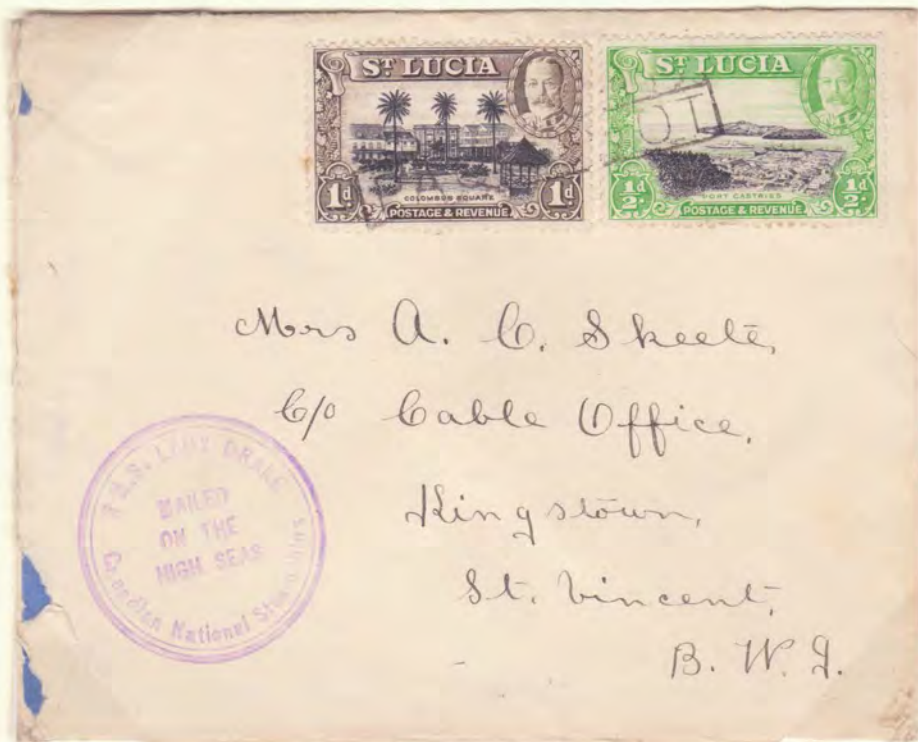 ST LUCIA
1d 1d
COLUMBUS SQUARE
POSTAGE & REVENUE
ST LUCIA
½d ½d
PORT CASTRIES
POSTAGE & REVENUE
Mrs A. C. Skeete,
C/o Cable Office,
Kingstown,
St. Vincent,
B. W. I.
LADY DRAKE
MAILED
ON THE
HIGH SEAS
Canadian National Steamships